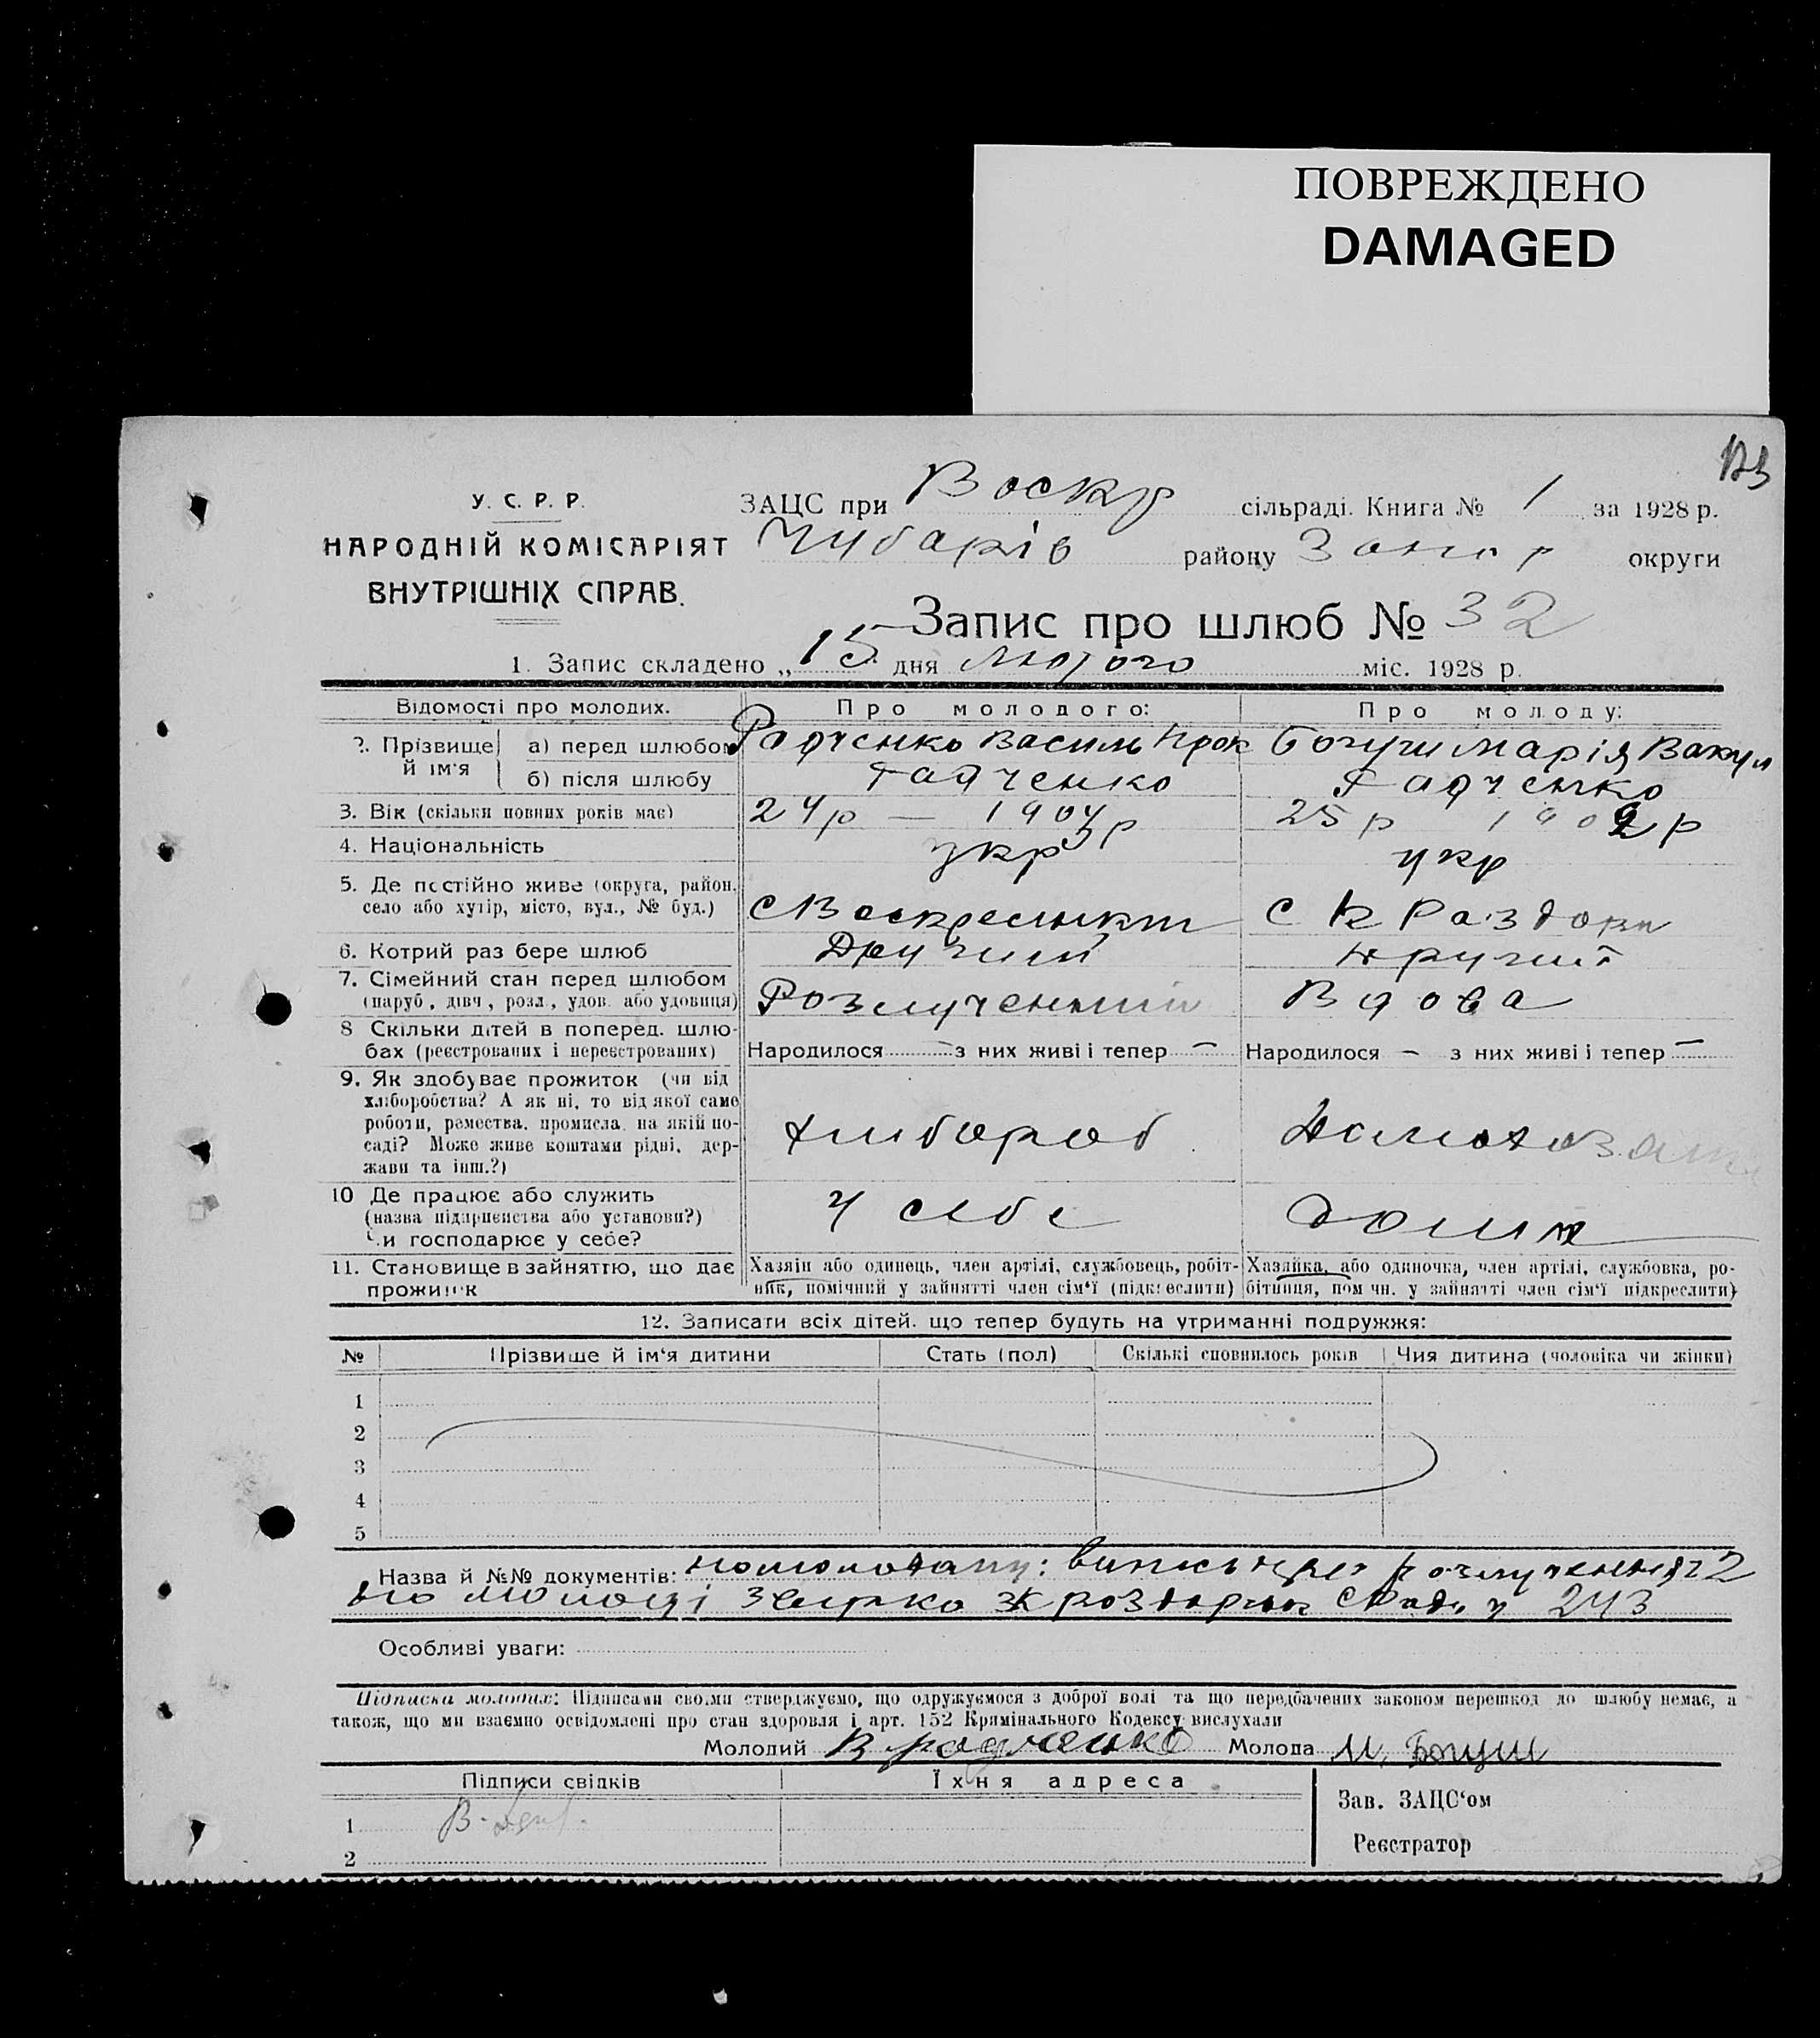 ПОВРЕЖДЕНО
DAMAGED
У. С. Р. Р.
НАРОДНІЙ КОМІСАРІЯТ
ВНУТРІШНІХ СПРАВ.
ЗАЦС при Воскр сільраді. Книга № 1 за 1928 р.
Чубарів району Запор округи
Запис про шлюб № 32
1. Запис складено „ 15 дня лютого міс. 1928 р.
Відомості про молодих. Про молодого: Про молоду:
2. Прізвище й ім'я а) перед шлюбом Радченко Василь Прок Марія Вакул
б) після шлюбу Радченко Радченко
3. Вік (скільки повних років має) 24 р — 1904 р 25 р 1902 р
4. Національність укр укр
5. Де постійно живе (округа, район,
село або хутір, місто, вул., № буд.) с Воскресенкт С К Раздори
6. Котрий раз бере шлюб Другий другий
7. Сімейний стан перед шлюбом
(паруб, дівч, розл, удов. або удовиця) Розлученний Вдова
8 Скільки дітей в поперед. шлю-
бах (реєстрованих і нереєстрованих) Народилося — з них живі і тепер — Народилося — з них живі і тепер —
9. Як здобуває прожиток (чи від
хліборобства? А як ні, то від якої саме
роботи, ремества, промисла, на якій по-
саді? Може живе коштами рідні, дер-
жави та інш.?) хлибороб
10 Де працює або служить
(назва підприємства або установи?)
Чи господарює у себе? У себе дома
11. Становище в зайняттю, що дає
прожиток
Хазяін або одинець, член артілі, службовець, робіт-
ник, помічний у зайнятті член сім'ї (підкреслити)
Хазяйка, або одиночка, член артілі, службовка, ро-
бітниця, пом чн. у зайнятті член сім'ї підкреслити)
12. Записати всіх дітей, що тепер будуть на утриманні подружжя:
№ Прізвище й ім'я дитини Стать (пол) Скількі сповнилось років Чия дитина (чоловіка чи жінки)
1
2
3
4
5
Назва й №№ документів: випись розлучення 2
243
Особливі уваги:
Підписка молодих: Підписами своїми стверджуємо, що одружуємося з доброї волі та що передбачених законом перешкод до шлюбу немає, а
також, що ми взаємно освідомлені про стан здоровля і арт. 152 Кримінального Кодексу вислухали
Молодий В Радченко Молода М. Богуш
Підписи свідків Їхня адреса
Зав. ЗАЦС'ом
1
Реєстратор
2